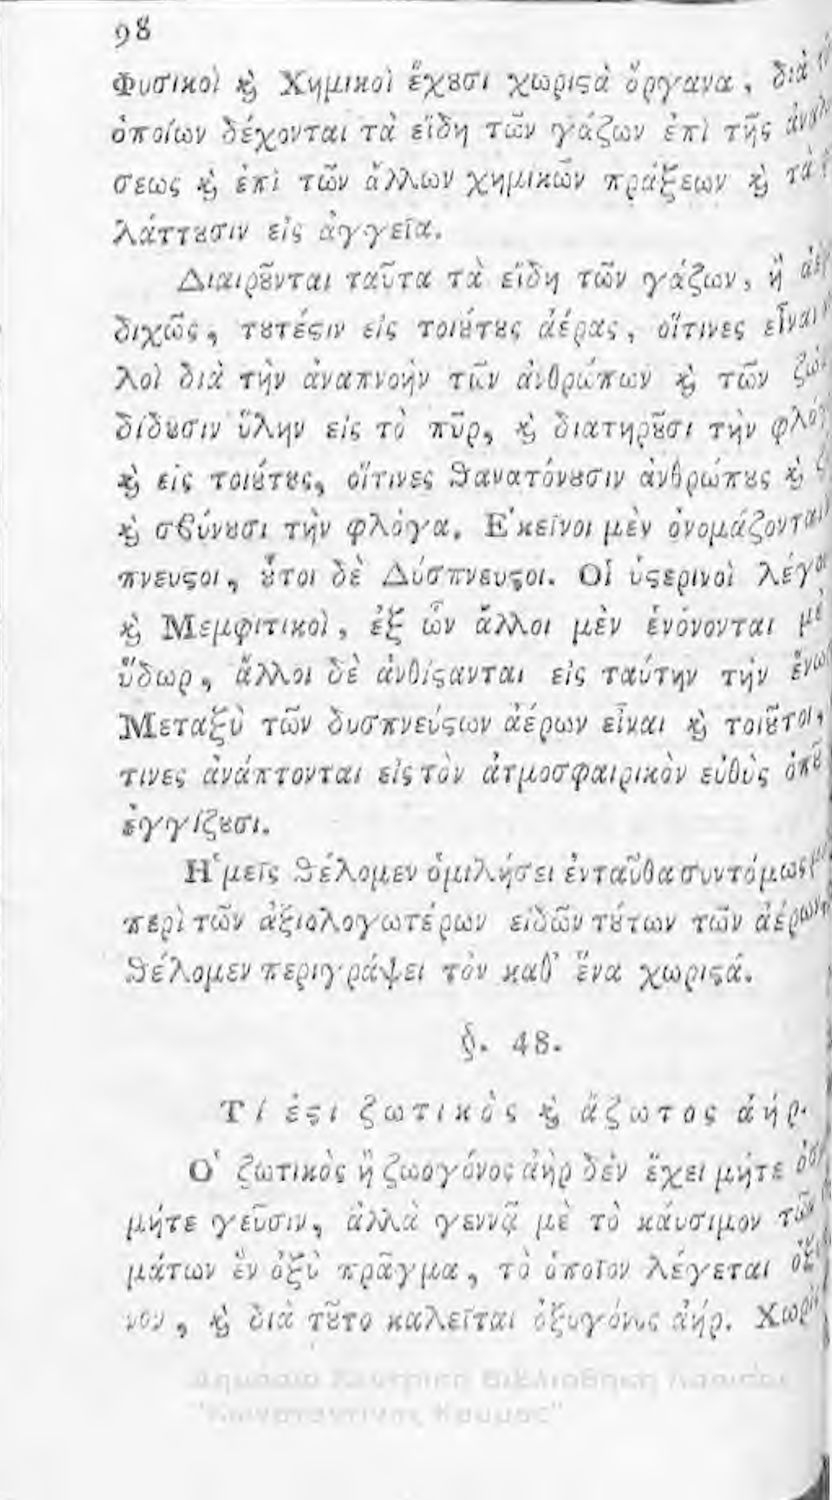 98
Φυσικοὶ ϗ Χημικοὶ ἔχȣσι χωριϛὰ ὄργανα, διὰ
ὁποίων δέχονται τὰ εἴδη τῶν γάζων ἐπὶ τῆς
σεως ϗ ἐπὶ τῶν ἄλλων χημικῶν πράξεων ϗ τὰ
λάττȣσιν εἰς ἀγγεῖα.
Διαιρȣ͂νται ταῦτα τὰ εἴδη τῶν γάζων, ἢ
διχῶς, τȣτέϛιν εἰς τοιȣ́τȣς ἀέρας, οἵτινες εἶναι
λοὶ διὰ τὴν ἀναπνοὴν τῶν ἀνθρώπων ϗ τῶν
δίδȣσιν ὕλην εἰς τὸ πῦρ, ϗ διατηρȣ͂σι τὴν
ϗ εἰς τοιȣ́τȣς, οἵτινες ϑανατόνȣσιν ἀνθρώπȣς ϗ
ϗ σϐύνȣσι τὴν φλόγα. Ἐκεῖνοι μὲν ὀνομάζονται
πνευϛοι, ȣ̔͂τοι δὲ Δύσπνευϛοι. Οἱ ὑϛερινοὶ
ϗ Μεμφιτικοὶ, ἐξ ὧν ἄλλοι μὲν ἑνόνονται μὲ
ὕδωρ, ἄλλοι δὲ ἀνθίϛανται εἰς ταύτην τὴν
Μεταξὺ τῶν δυσπνεύϛων ἀέρων εἶναι ϗ τοιȣ͂τοι,
τινες ἀνάπτονται εἰς τὸν ἀτμοσφαιρικὸν εὐθὺς ὁπȣ͂
ἐγγίζȣσι.
Ἡμεῖς ϑέλομεν ὁμιλήσει ἐνταῦθα συντόμως
περὶ τῶν ἀξιολογωτέρων εἰδῶν τȣ́των τῶν ἀέρων,
ϑέλομεν περιγράψει τὸν καθ' ἕνα χωριϛά.
§. 48.
Τί ἐϛι ζωτικὸς ϗ ἄζωτος ἀήρ.
Ὁ ζωτικὸς ἢ ζωογόνος ἀὴρ δὲν ἔχει μήτε
μήτε γεῦσιν, ἀλλὰ γεννᾷ μὲ τὸ κάυσιμον τῶν
μάτων ἓν ὀξὺ πρᾶγμα, τὸ ὁποῖον λέγεται
νον, ϗ διὰ τȣ͂το καλεῖται ὀξυγόνος ἀήρ.
Δημόσια Κεντρική Βιβλιοθήκη
"Κωνσταντίνος Κούμας"